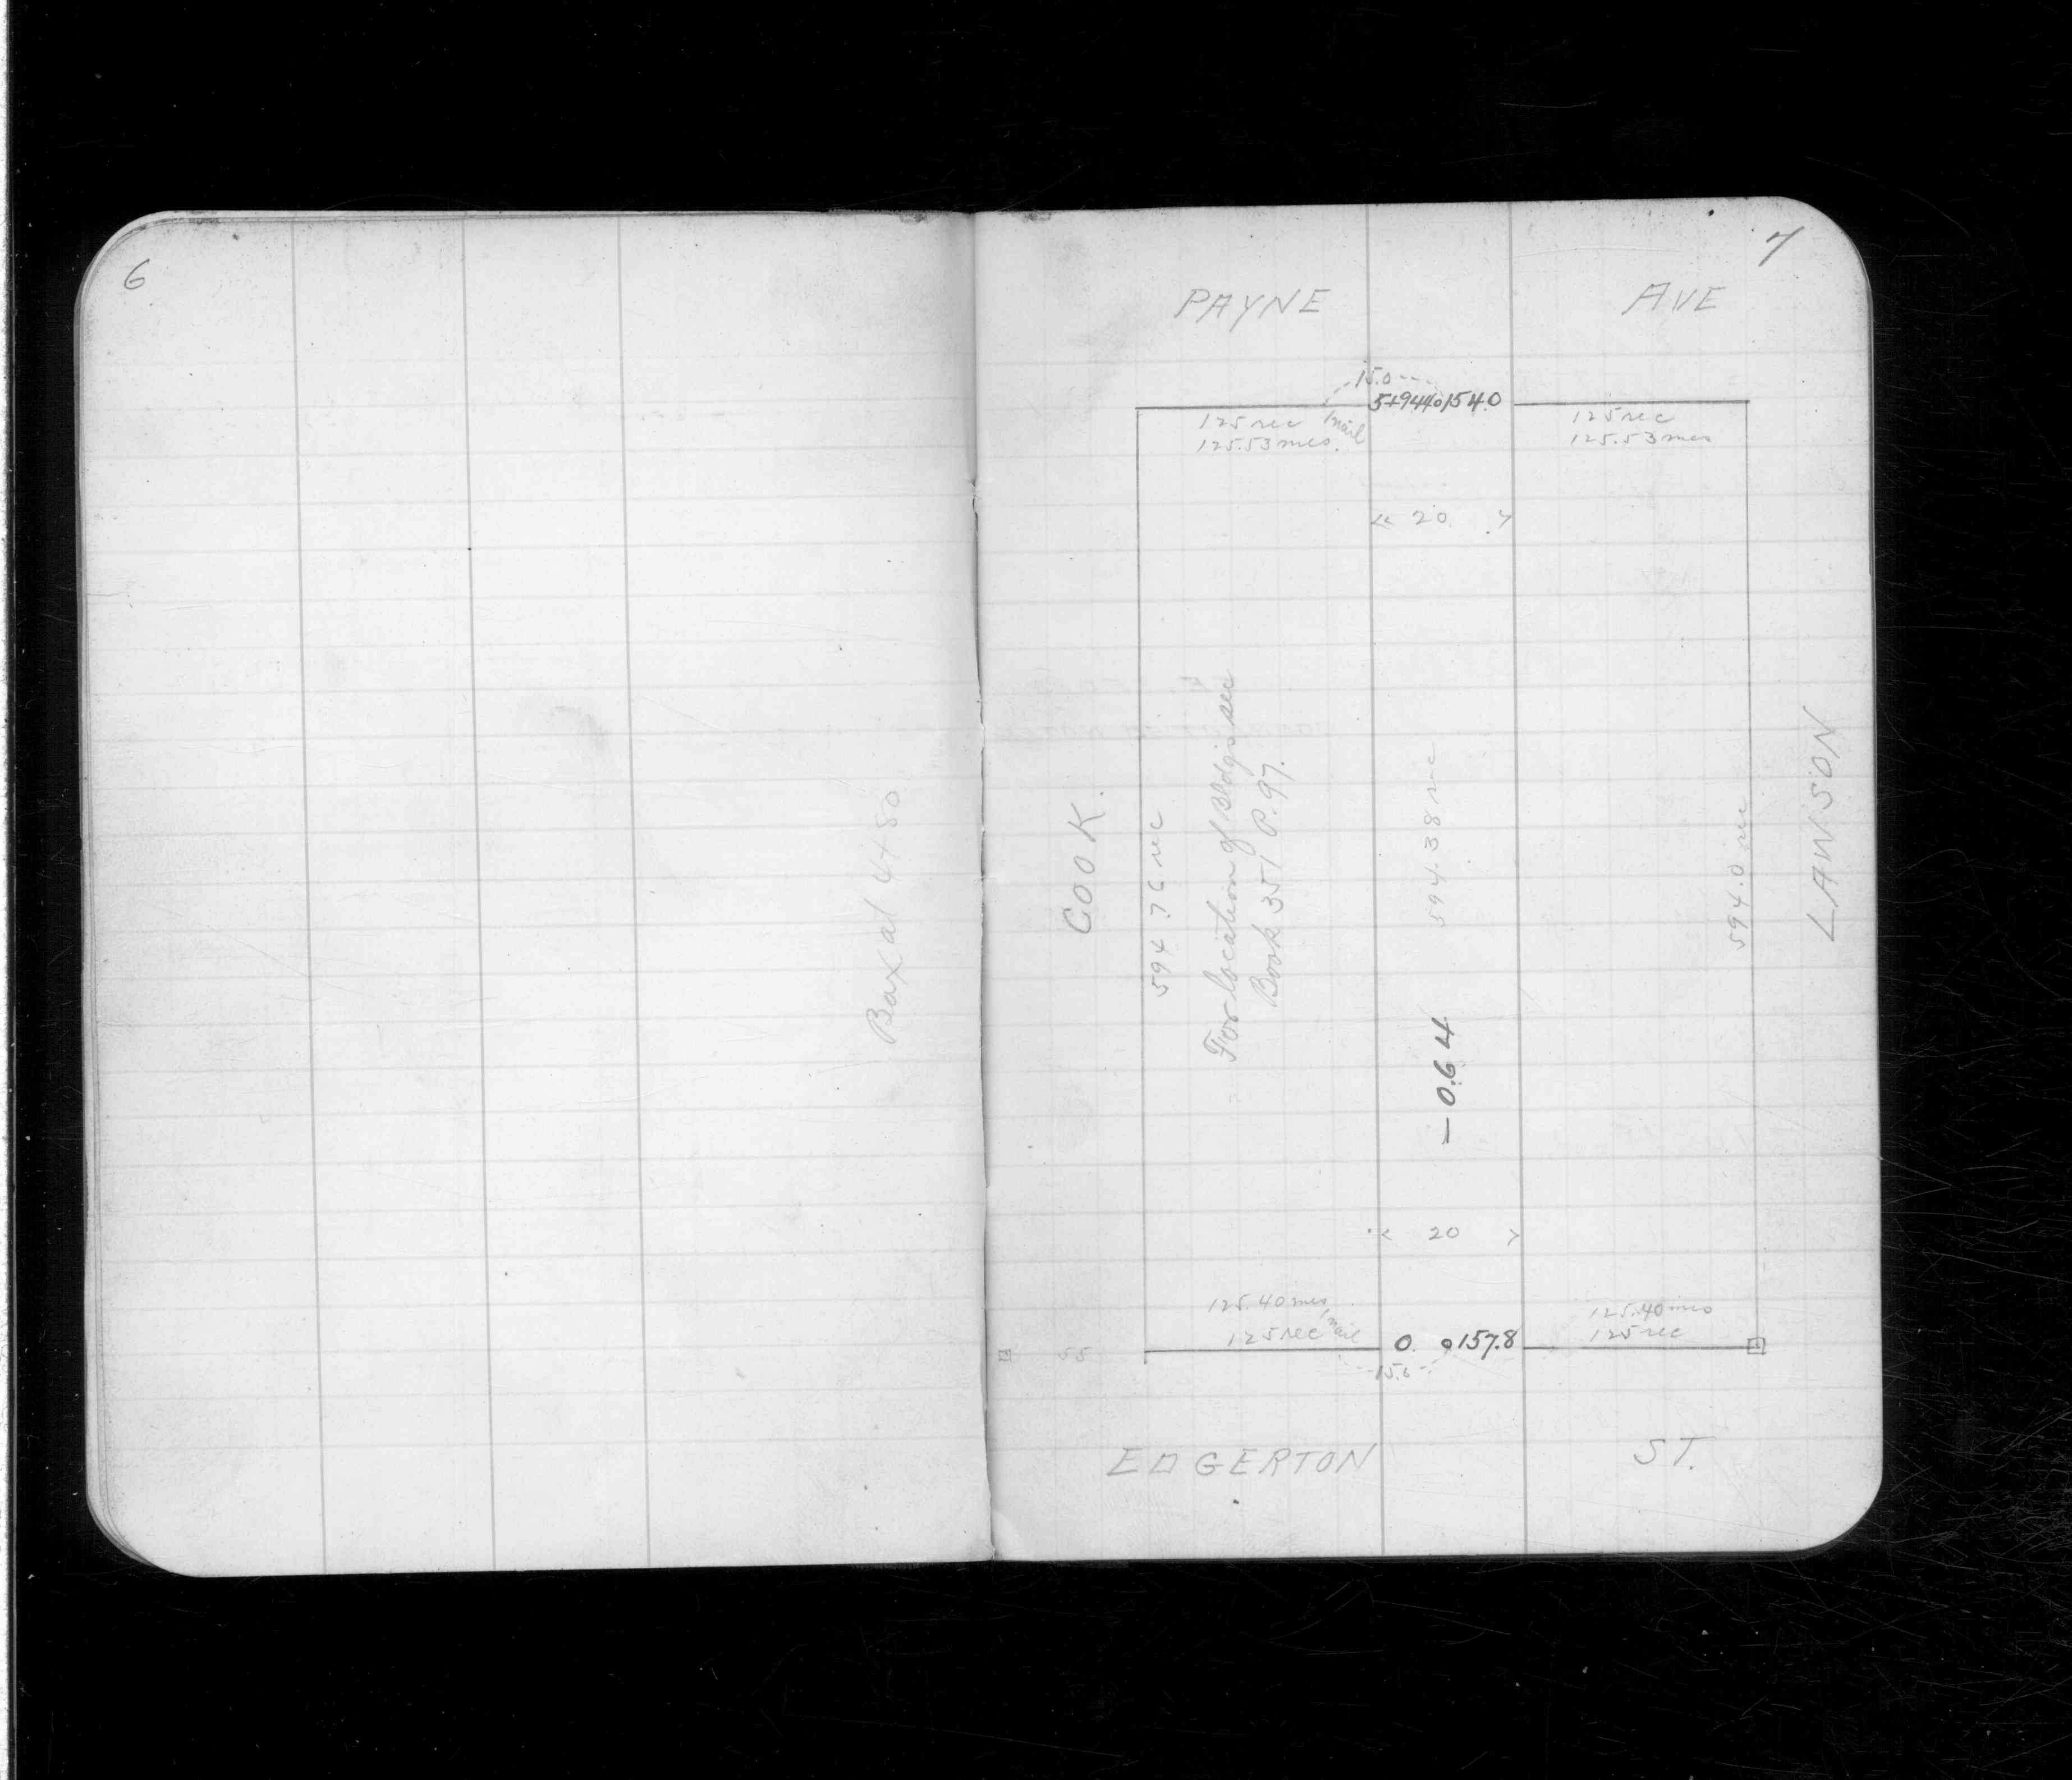 6
Box at 4+80
7
PAYNE AVE
15.0
5+94.4 154.0
125 rec nail
125.53 mes.
125 rec
125.53 mes
20
COOK.
594.76 rec
For location of Bldgs see
Book 351 P. 97.
594.38 rec
-0.64
594.0 rec
LAWSON
20
125.40 mes
125 rec nail
125.40 mes
125 rec
55
0 157.8
EDGERTON ST.